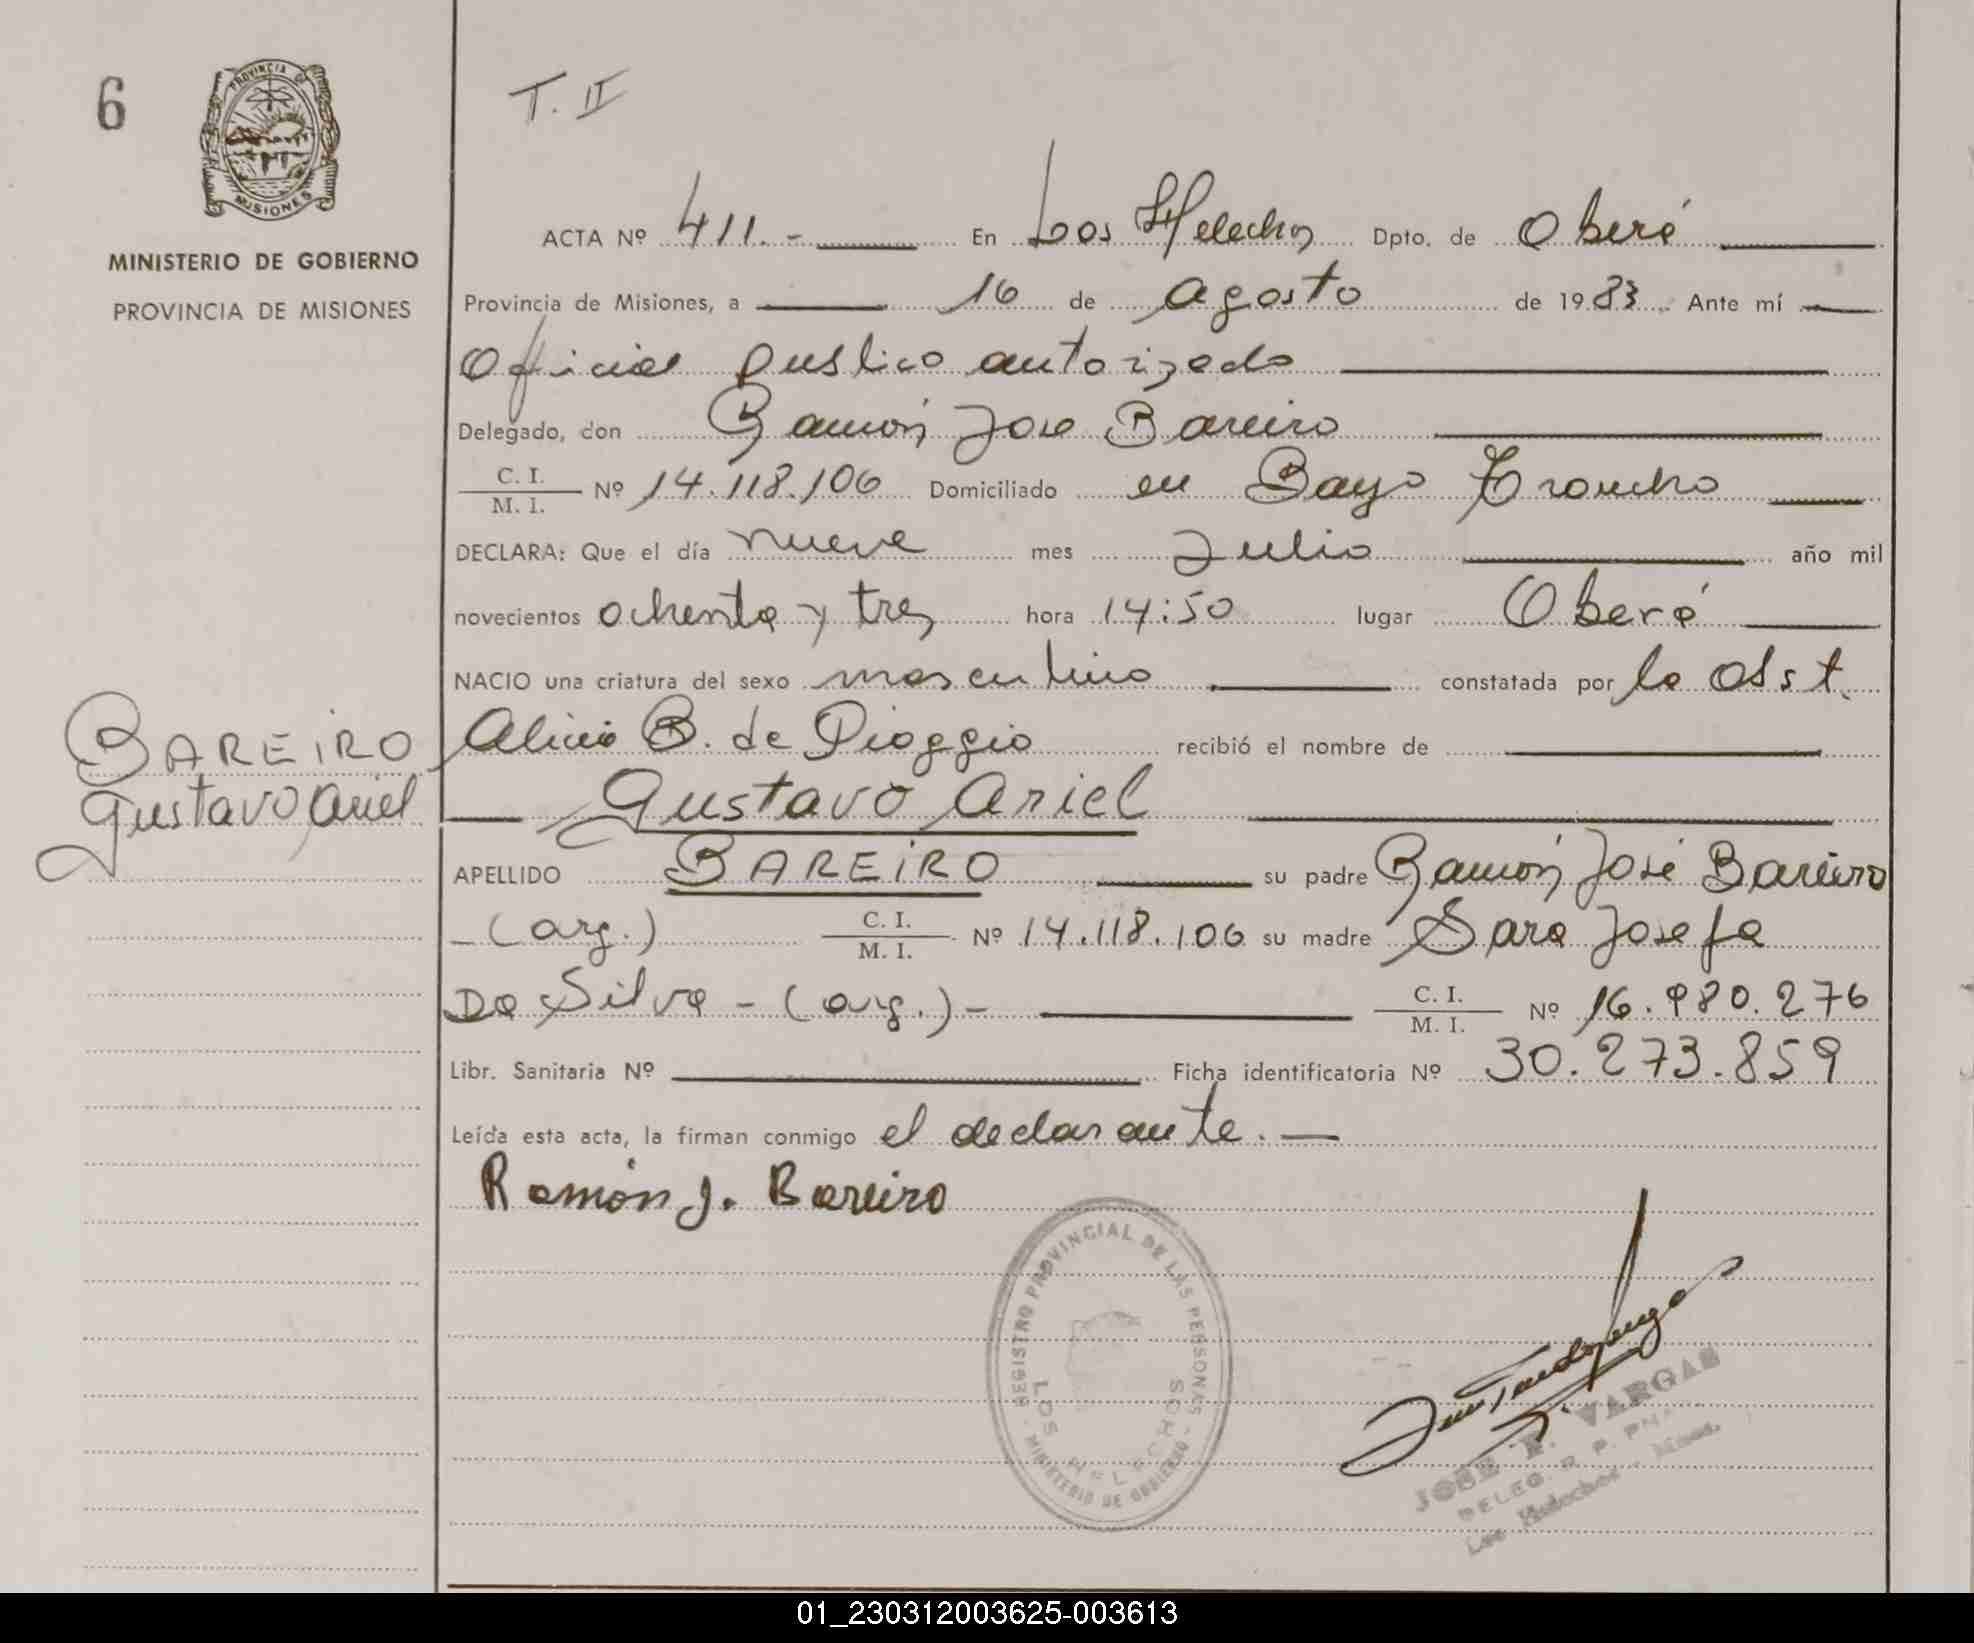 6
PROVINCIA DE
MISIONES
MINISTERIO DE GOBIERNO
PROVINCIA DE MISIONES
T. II
ACTA Nº 411.- En Los Helechos Dpto. de Oberá
Provincia de Misiones, a 16 de agosto de 1983 Ante mí
Oficial publico autorizado
Delegado, don Ramón Jose Bareiro
C. I. / M. I. Nº 14.118.106 Domiciliado en Bayo Troncho
DECLARA: Que el día nueve mes Julio año mil
novecientos ochenta y tres hora 14:50 lugar Oberá
NACIO una criatura del sexo masculino constatada por la Obst.
Alicia B. de Pioggio recibió el nombre de
Gustavo Ariel
BAREIRO
Gustavo Ariel
APELLIDO BAREIRO su padre Ramón José Bareiro
(arg.) C. I. / M. I. Nº 14.118.106 su madre Sara Josefa
Da Silva - (arg.) - C. I. / M. I. Nº 16.980.276
Libr. Sanitaria Nº Ficha identificatoria Nº 30.273.859
Leída esta acta, la firman conmigo el declarante.
Ramón J. Bareiro
REGISTRO PROVINCIAL DE LAS PERSONAS
- MINISTERIO DE GOBIERNO -
LOS HELECHOS
JOSE F. VARGAS
DELEG. R. P.
Los Helechos - Mnes.
01_230312003625-003613